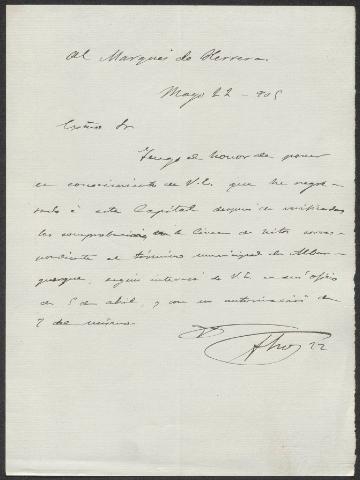 Al Marques de Herrera.
Mayo 22 - 905
Exmo Sr
Tengo el honor de poner
en conocimiento de V.E. que he regre-
sado á esta Capital después de verificadas
las comprobaciones en la línea de hitos corres-
pondiente al término municipal de Albur-
querque, según interesó de V.E. en su oficio
de 5 de abril, y con su autorización de
7 de mismo.